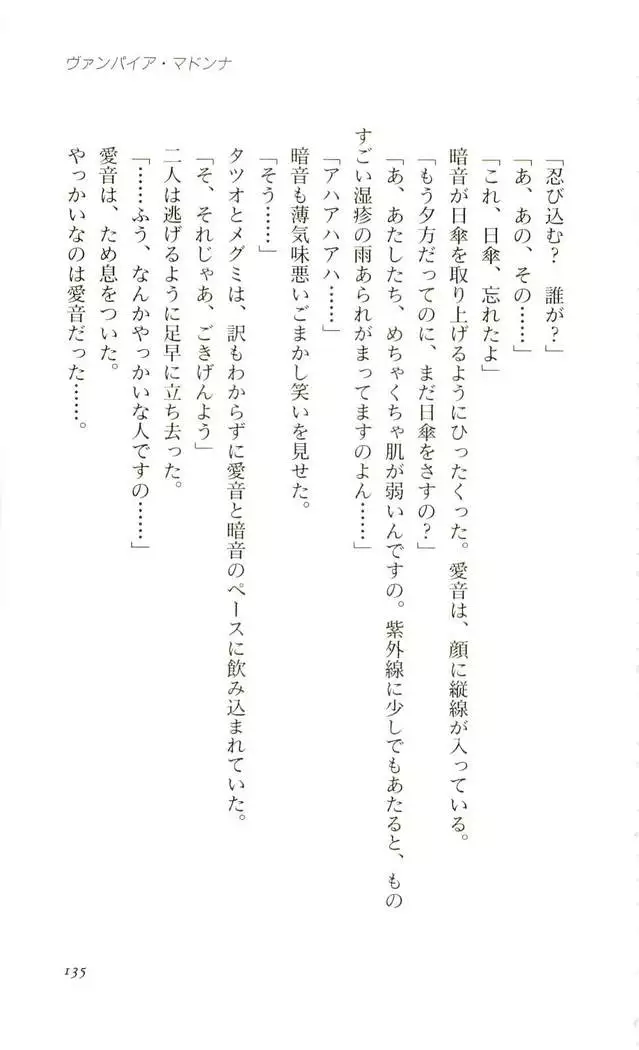 ヴァンパイア・マドンナ
「忍び込む？　誰が？」
「あ、あの、その……」
「これ、日傘、忘れたよ」
暗音が日傘を取り上げるようにひったくった。愛音は、顔に縦線が入っている。
「もう夕方だってのに、まだ日傘をさすの？」
「あ、あたしたち、めちゃくちゃ肌が弱いんですの。紫外線に少しでもあたると、もの
すごい湿疹の雨あられがまってますのよん……」
「アハアハアハ……」
暗音も薄気味悪いごまかし笑いを見せた。
「そう……」
タツオとメグミは、訳もわからずに愛音と暗音のペースに飲み込まれていた。
「そ、それじゃあ、ごきげんよう」
二人は逃げるように足早に立ち去った。
「……ふう、なんかやっかいな人ですの……」
愛音は、ため息をついた。
やっかいなのは愛音だった……。
135